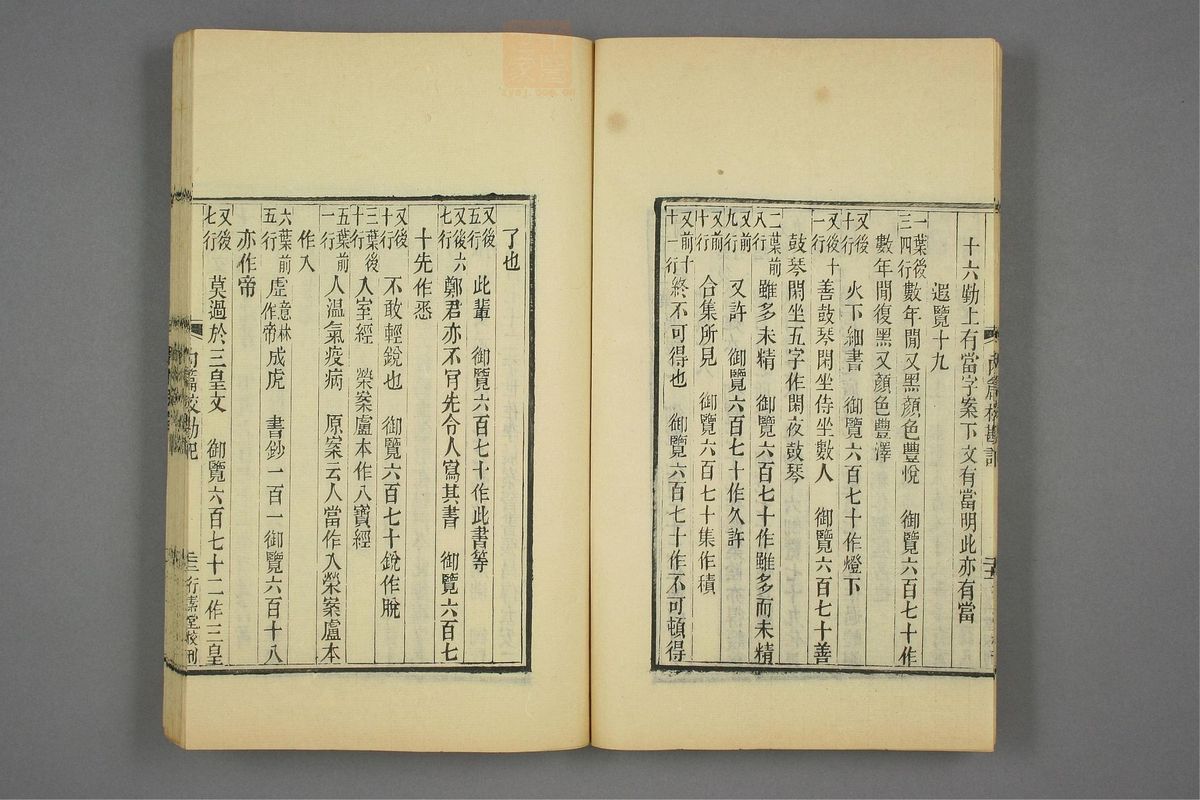 十六勅上有當字案下文有當明此亦有當
遐覽十九
一葉後三四行數年閒又黑顏色豐悅 御覽六百七十作
數年閒復黑又顏色豐澤
又後十行 火下細書 御覽六百七十作燈下
又後十一行 善鼓琴閑坐侍坐數人 御覽六百七十善
鼓琴閑坐五字作閑夜鼓琴
二葉前八行 雖多未精 御覽六百七十作雖多而未精
又前九行 又許 御覽六百七十作久許
又前十行 合集所見 御覽六百七十集作積
又前十十一行 終不可得也 御覽六百七十作不可頓得
了也
又後五行 此輩 御覽六百七十作此書等
又後六七行 鄭君亦不肎先令人寫其書 御覽六百七
十先作悉
又後十行 不敢輕銳也 御覽六百七十銳作脫
三葉後十行 入室經 榮案盧本作八寶經
五葉前一行 人溫氣疫病 原案云人當作入榮案盧本
作入
六葉前五行 虛意林作帝成虎 書鈔一百一御覽六百十八
亦作帝
又後七行 莫過於三皇文 御覽六百七十二作三皇
內篇校勘記
行素堂校刊